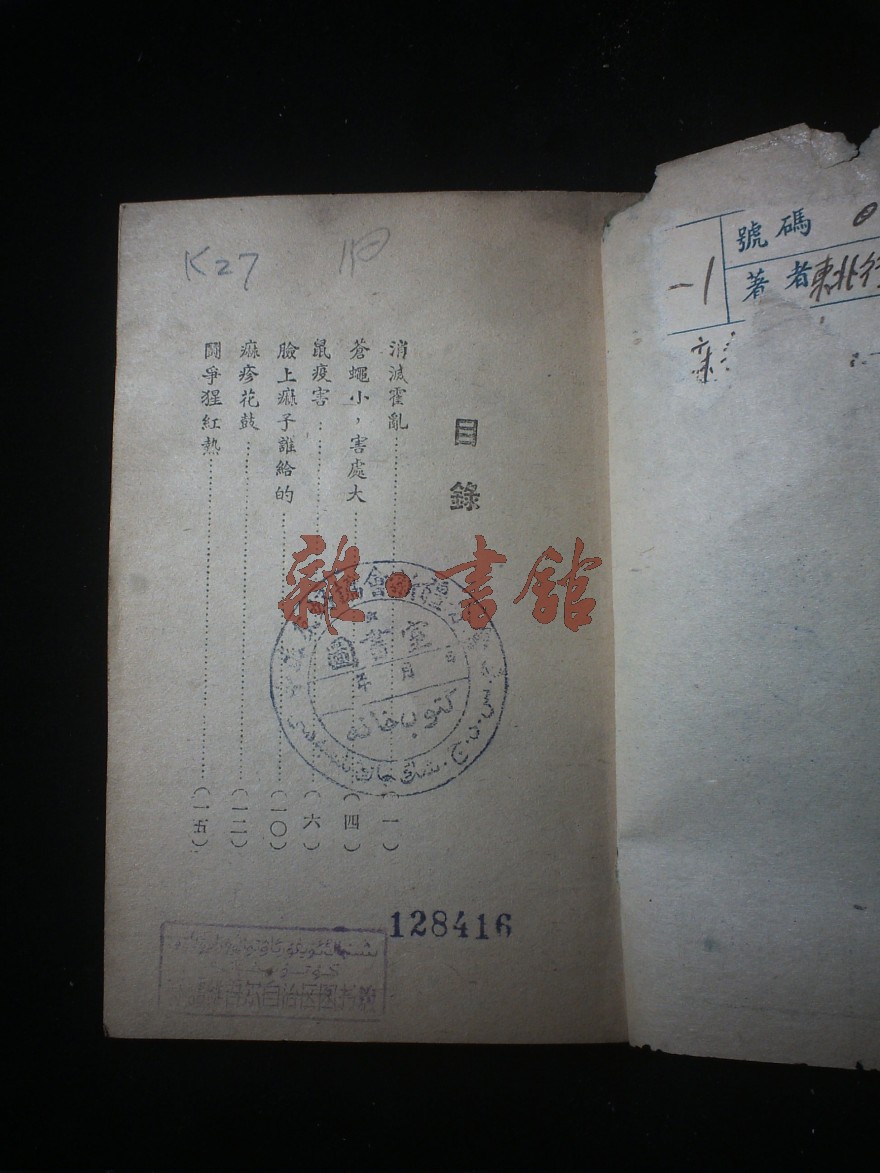 號碼
著者東北行
一1
K27
目錄
消滅霍亂……(一)
蒼蠅小，害處大……(四)
鼠疫害……(六)
臉上痲子誰給的……(一〇)
痲疹花鼓……(一二)
鬪爭猩紅熱……(一五)
雜·書館
圖書室
年 月 日
كتوب خانه
128416
维吾尔自治区图书馆